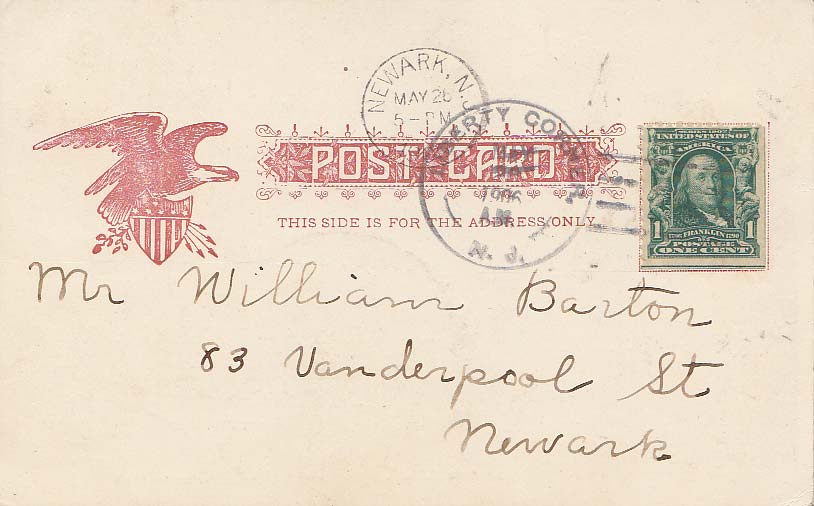 NEWARK, N.J.
MAY 28
5-PM
LIBERTY CORNER
MAY
1906
A.M.
N. J.
POST CARD
THIS SIDE IS FOR THE ADDRESS ONLY
SERIES 1902
UNITED STATES OF
AMERICA
1 1706 FRANKLIN 1790 1
POSTAGE
ONE CENT
Mr William Barton
83 Vanderpool St
Newark